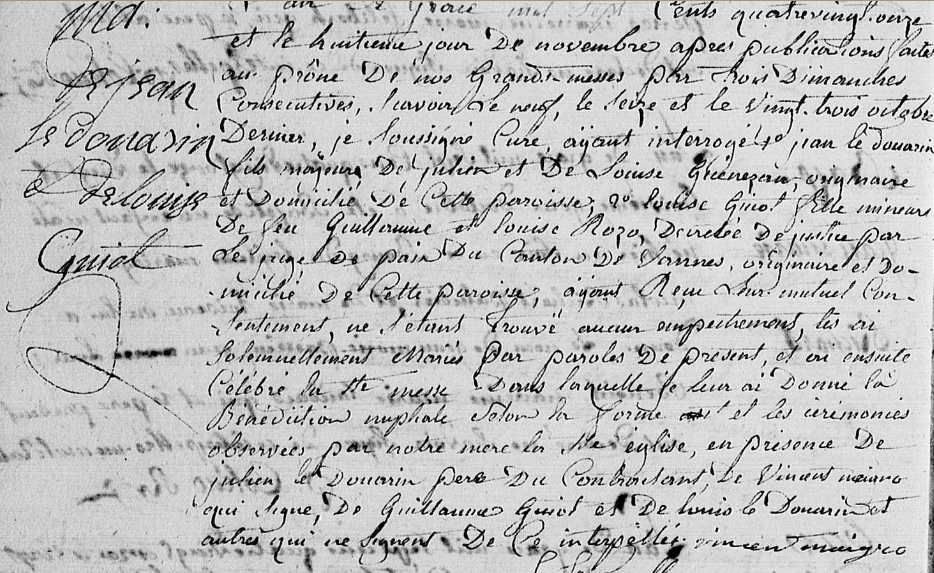 Md.
de jean
le douarin
& de louise
Guiot
L'an de Grace mil sept Cents quatrevingt onze
et le huitieme jour De novembre apres publications faites
au prône De nos Grands-messes par trois Dimanches
Consecutives, Savoir Le neuf, le Seize et le Vingt-trois octobre
Dernier, je Soussigné Curé, ayant interrogé 1° jean le douarin
fils majeur De julien et De Louise originaire
et Domicilié De Cette paroisse, 2° Louise Guiot fille mineure
De feu Guillaume et louise Rozo, Decretée De justice par
Le juge De paix Du Canton De Vannes, originaire et Do-
micilié De Cette paroisse, ayant Recu Leur mutuel Con-
sentement, ne S'étant trouvé aucun empechement, les ai
Solemnellement Mariés par paroles De present, et ai ensuite
Célébré la Ste messe Dans laquelle je leur ai Donné la
Bénédiction nuptiale Selon la forme et les cérémonies
observées par notre mere la Ste église, en présence De
julien le Douarin pere Du Contractant, De Vincent maigro
qui Signe, De Guillaume Guiot et De louis le Douarin et
autres qui ne Signent De Ce interpellés vincen maigro